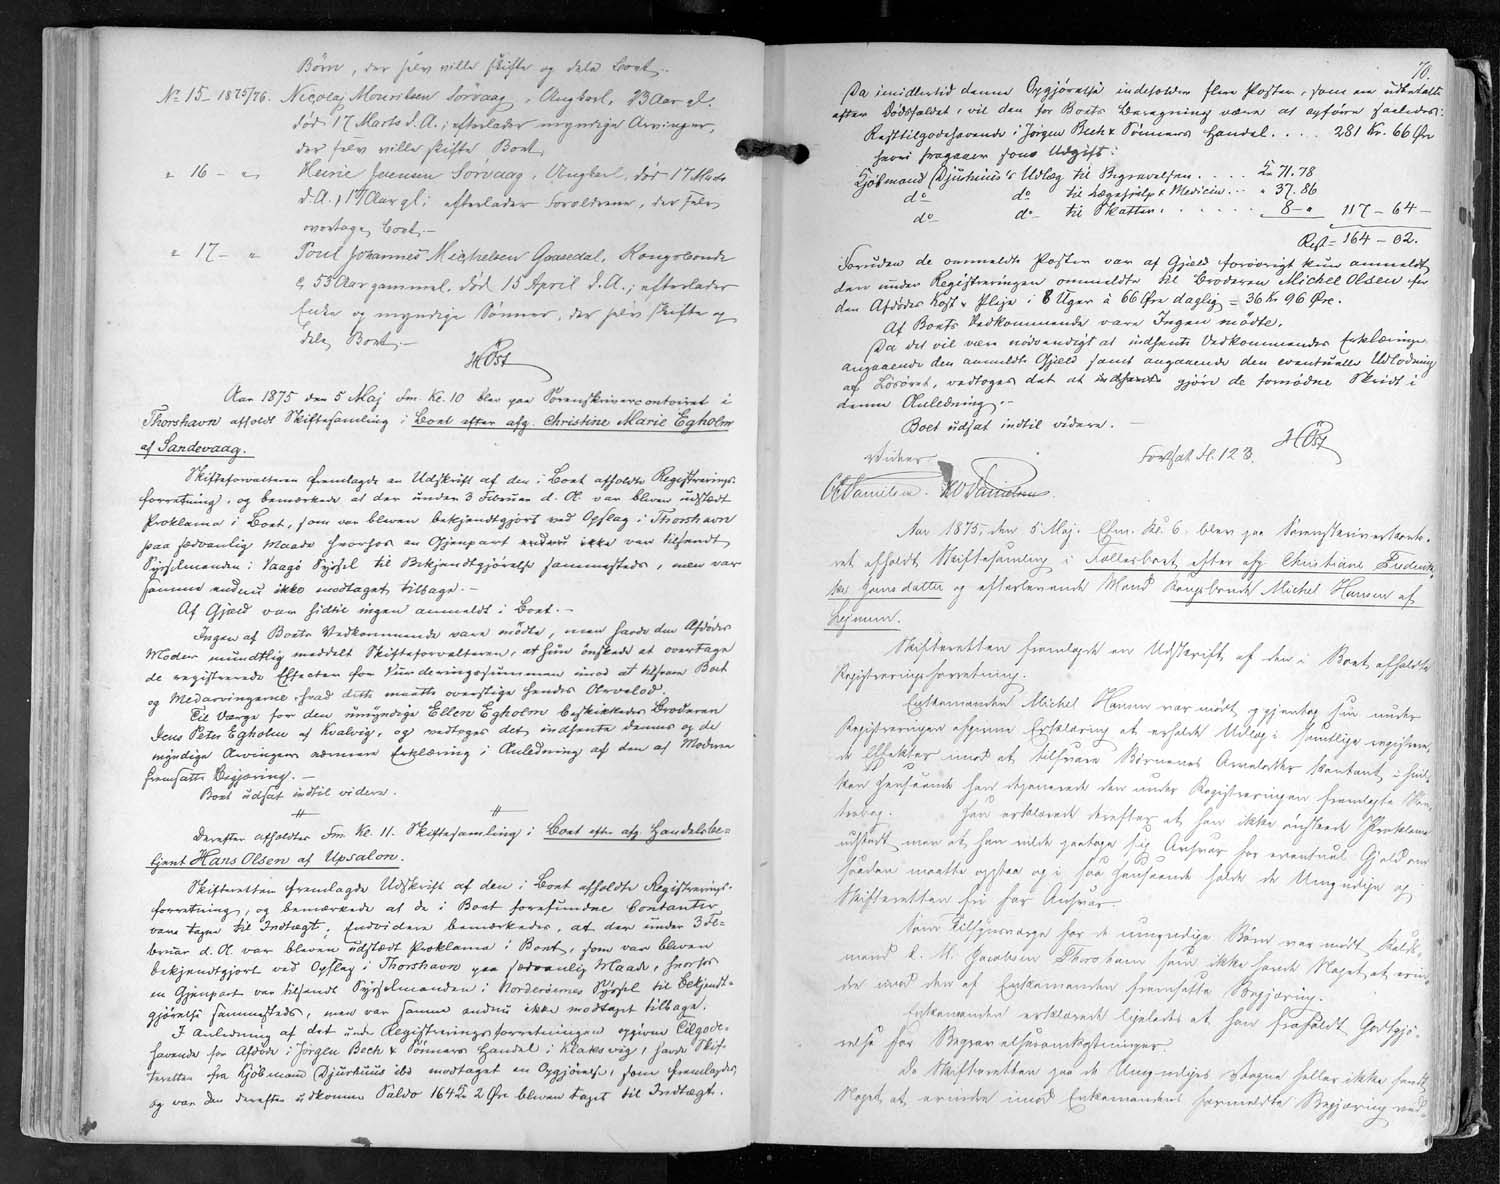 Børn, der selv ville skifte og dele Boet.
No 15 - 1875/76. Nicolaj Mouritsen Sørvaag, Ungkarl, 73 Aar gl.
død 17 Marts d. A.; efterlader myndige Arvinger,
der selv ville skifte Boet.
" 16 - " Heinie Joensen Sørvaag, Ungkarl, død 17 Marts
d. A., Aar gl; efterlader Forældrene, der selv
overtage Boet. -
" 17 - " Poul Johannes Michelsen Gaasedal, Kongsbonde
55 Aar gammel, død 15 April d. A.; efterlader
Enke og myndige Sønner, der selv skifte og
dele Boet. -
HØst
Aar 1875 den 5 Maj Fm. Kl. 10 blev paa Sorenskrivercontoiret i
Thorshavn afholdt Skiftesamling i Boet efter afg. Christine Marie Egholm
af Sandevaag.
Skifteforvalteren fremlagde en Udskrift af den i Boet afholdte Registrerings-
forretning, og bemærkede at der under 3 Februar d. A. var bleven udstædt
Proklama i Boet, som var bleven bekjendtgjort ved Opslag i Thorshavn
paa sædvanlig Maade hvorhos en Gjenpart endnu ikke var tilsendt
Sysselmanden i Vaagø Syssel til Bekjendtgjørelse sammesteds, men var
samme endnu ikke modtaget tilbage. -
Af Gjæld var hidtil ingen anmeldt i Boet. -
Ingen af Boets Vedkommende vare mødte, men havde den Afdødes
Moder mundtlig meddelt Skifteforvalteren, at hun ønskede at overtage
de registrerede Effecter for Vurderingssummen imod at tilsvare Boet
og Medarvingerne hvad dette maatte overstige hendes Arvelod.
Til Værge for den umyndige Ellen Egholm beskikkedes Broderen
Jens Peter Egholm af Kvalvig, og vedtoges det indhente dennes og de
myndige Arvingers nærmere Erklæring i Anledning af den af Moderen
fremsatte Begjæring. -
Boet udsat indtil videre.
Derefter afholdtes Fm. Kl. 11. Skiftesamling i Boet efter afg. Handelsbe-
tjent Hans Olsen af Upsalon.
Skifteretten fremlagde Udskrift af den i Boet afholdte Registrerings-
forretning, og bemærkede at de i Boet forefundne Contanter
vare tagne til Indtægt. Endvidere bemærkedes, at der under 3 Fe-
bruar d. A. var bleven udstædt Proklama i Boet, som var bleven
bekjendtgjort ved Opslag i Thorshavn paa sædvanlig Maade, hvorhos
en Gjenpart var tilsendt Sysselmanden i Norderøernes Syssel til Bekjendt-
gjørelse sammesteds, men var samme endnu ikke modtaget tilbage.
I Anledning af det under Registreringsforretningen opgivne Tilgode-
havende for Afdøde i Jørgen Bech & Sønners Handel i Klaksvig, havde Skif-
teretten fra Kjøbmand Djurhuus ibd modtaget en Opgjørelse, som fremlagdes,
og var den derefter udkomne Saldo 164 Kr 2 Øre bleven taget til Indtægt.
70.
Da imidlertid denne Opgjørelse indeholder flere Poster, som ere udbetalte
efter Dødsfaldet, vil den for Boets Beregning være at opføre saaledes:
Resttilgodehavende i Jørgen Bech & Sønners Handel . . . . 281 Kr. 66 Øre
herfra fragaaer som Udgift:
Kjøbmand Djurhuus's Udlæg til Begravelsen . . . . Kr 71.78
do do til Lægehjelp & Medicin . . . " 37.86
do do til Skatten . . . . . . 8 - " 117 - 64 -
Rest = 164 - 02.
Foruden de anmeldte Poster var af Gjæld forøvrigt kun anmeldt
den under Registreringen anmeldte til Broderen Michel Olsen for
den Afdødes Kost & Pleje i 8 Uger à 66 Øre daglig = 36 Kr 96 Øre.
Af Boets Vedkommende vare Ingen mødte.
Da det vil være nødvendigt at indhente Vedkommendes Erklæring
angaaende den anmeldte Gjæld samt angaaende den eventuelle Udlodning
af Løsøret, vedtoges det at indhente gjøre de fornødne Skridt i
denne Anledning. -
Boet udsat indtil videre. -
HØst
Vidner: Fortsat fl. 123.
Danielsen. Danielsen
Aar 1875, den 5 Maj. Efm. Kl. 6. blev paa Sorenskriverkonto-
ret afholdt Skiftesamling i Fællesboet efter afg Christiane Frederik-
ke Hansdatter og efterlevende Mand Kongsbonde Michel Hansen af
Lejnum.
Skifteretten fremlagde en Udskrift af den i Boet afholdte
Registreringsforretning.
Enkemanden Michel Hansen var mødt gjentog sin under
Registreringen afgivne Erklæring at erholde Udlæg i samtlige registrere-
de Effekter imod at tilsvare Børnenes Arvelodder kontant, i hvil-
ken Henseende han deponerede den under Registreringen fremlagte
. Han erklærede derefter at han ikke ønskede Proklama
udstædt men at han vilde paatage sig Ansvar for eventuel Gjæld om
saadan maatte opstaa og i saa Henseende holde de Umyndige og
Skifteretten fri for Ansvar.
Som Tilsynsværge for de umyndige Børn var mødt
mand Jacobsen Thorshavn som ikke havde Noget at erin-
dre imod den af Enkemanden fremsatte Begjæring.
Enkemanden erklærede ligeledes at han frafaldt Godtgjø-
relse for Begravelsesomkostninger.
Da Skifteretten paa de Umyndiges Vegne heller ikke havde
Noget at erindre imod Enkemandens formeldte Begjæring ved-